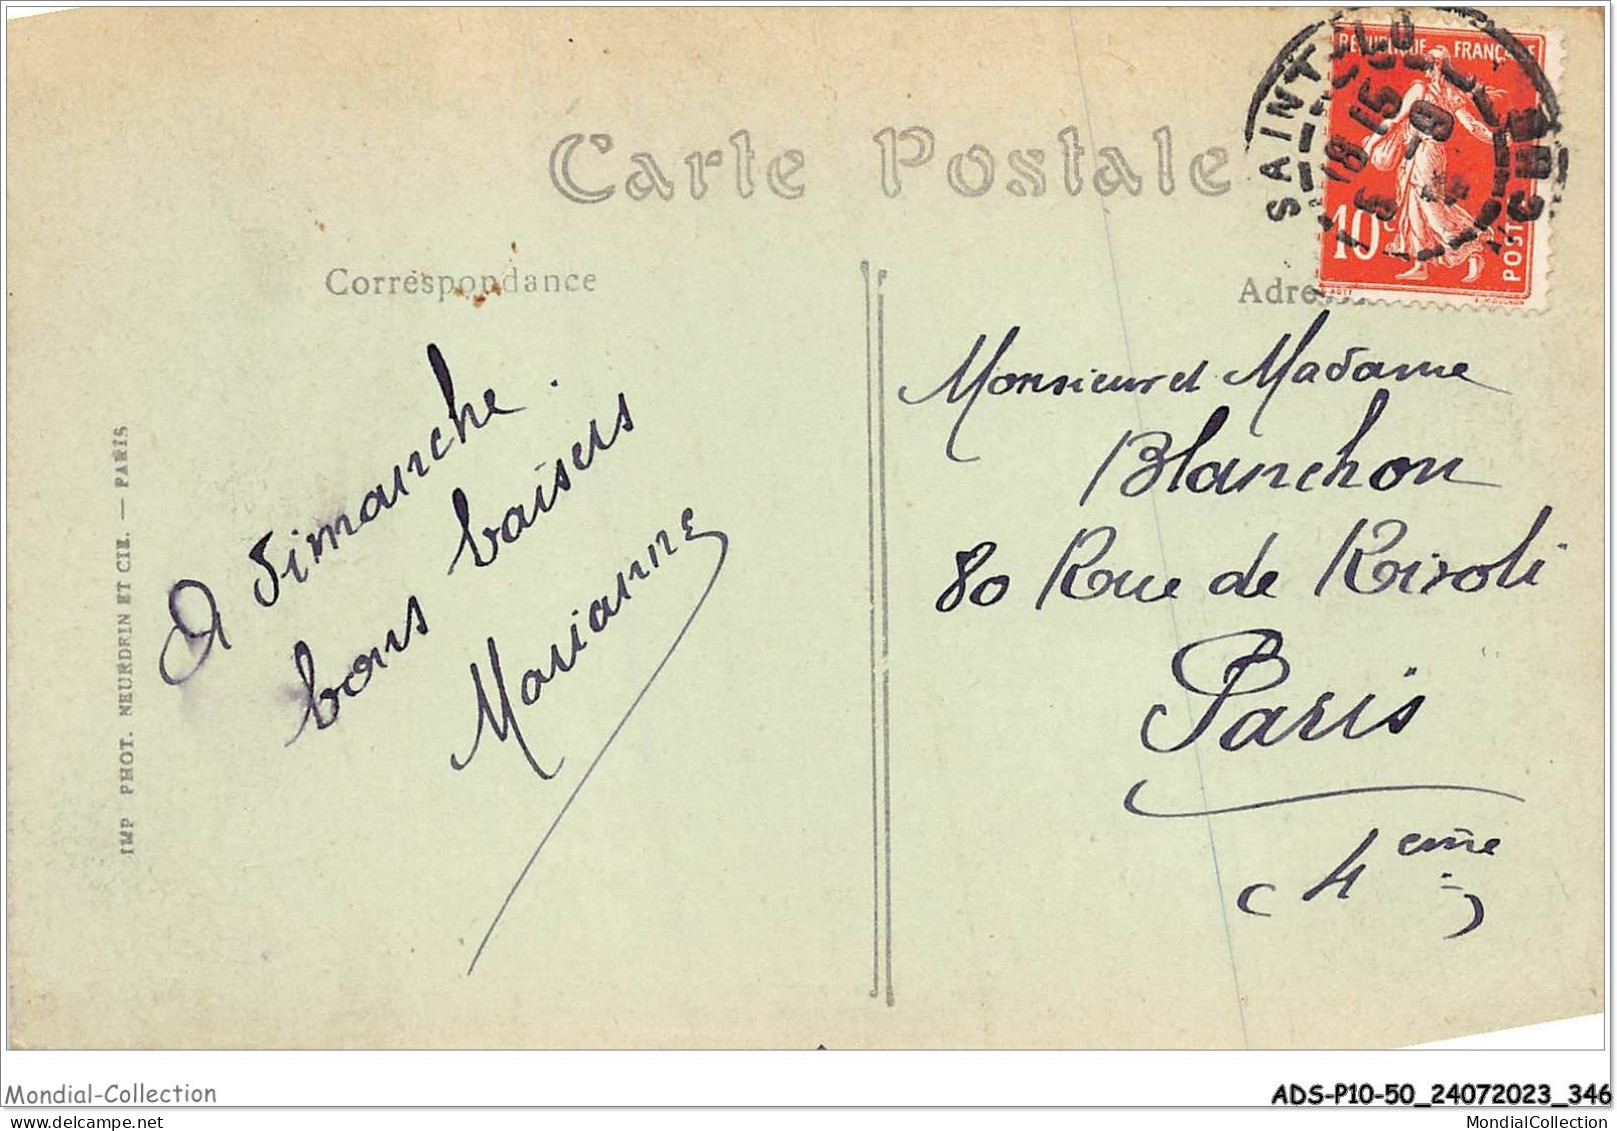 Carte Postale
Correspondance
A dimanche.
bons baisers
Marianne
IMP PHOT. NEURDEIN ET CIE. — PARIS
RÉPUBLIQUE FRANÇAISE
10
POSTES
SAINT
18 15
5 - 9
Monsieur et Madame
Blanchon
80 Rue de Rivoli
Paris
(4eme)
Mondial-Collection
ADS-P10-50_24072023_346
MondialCollection